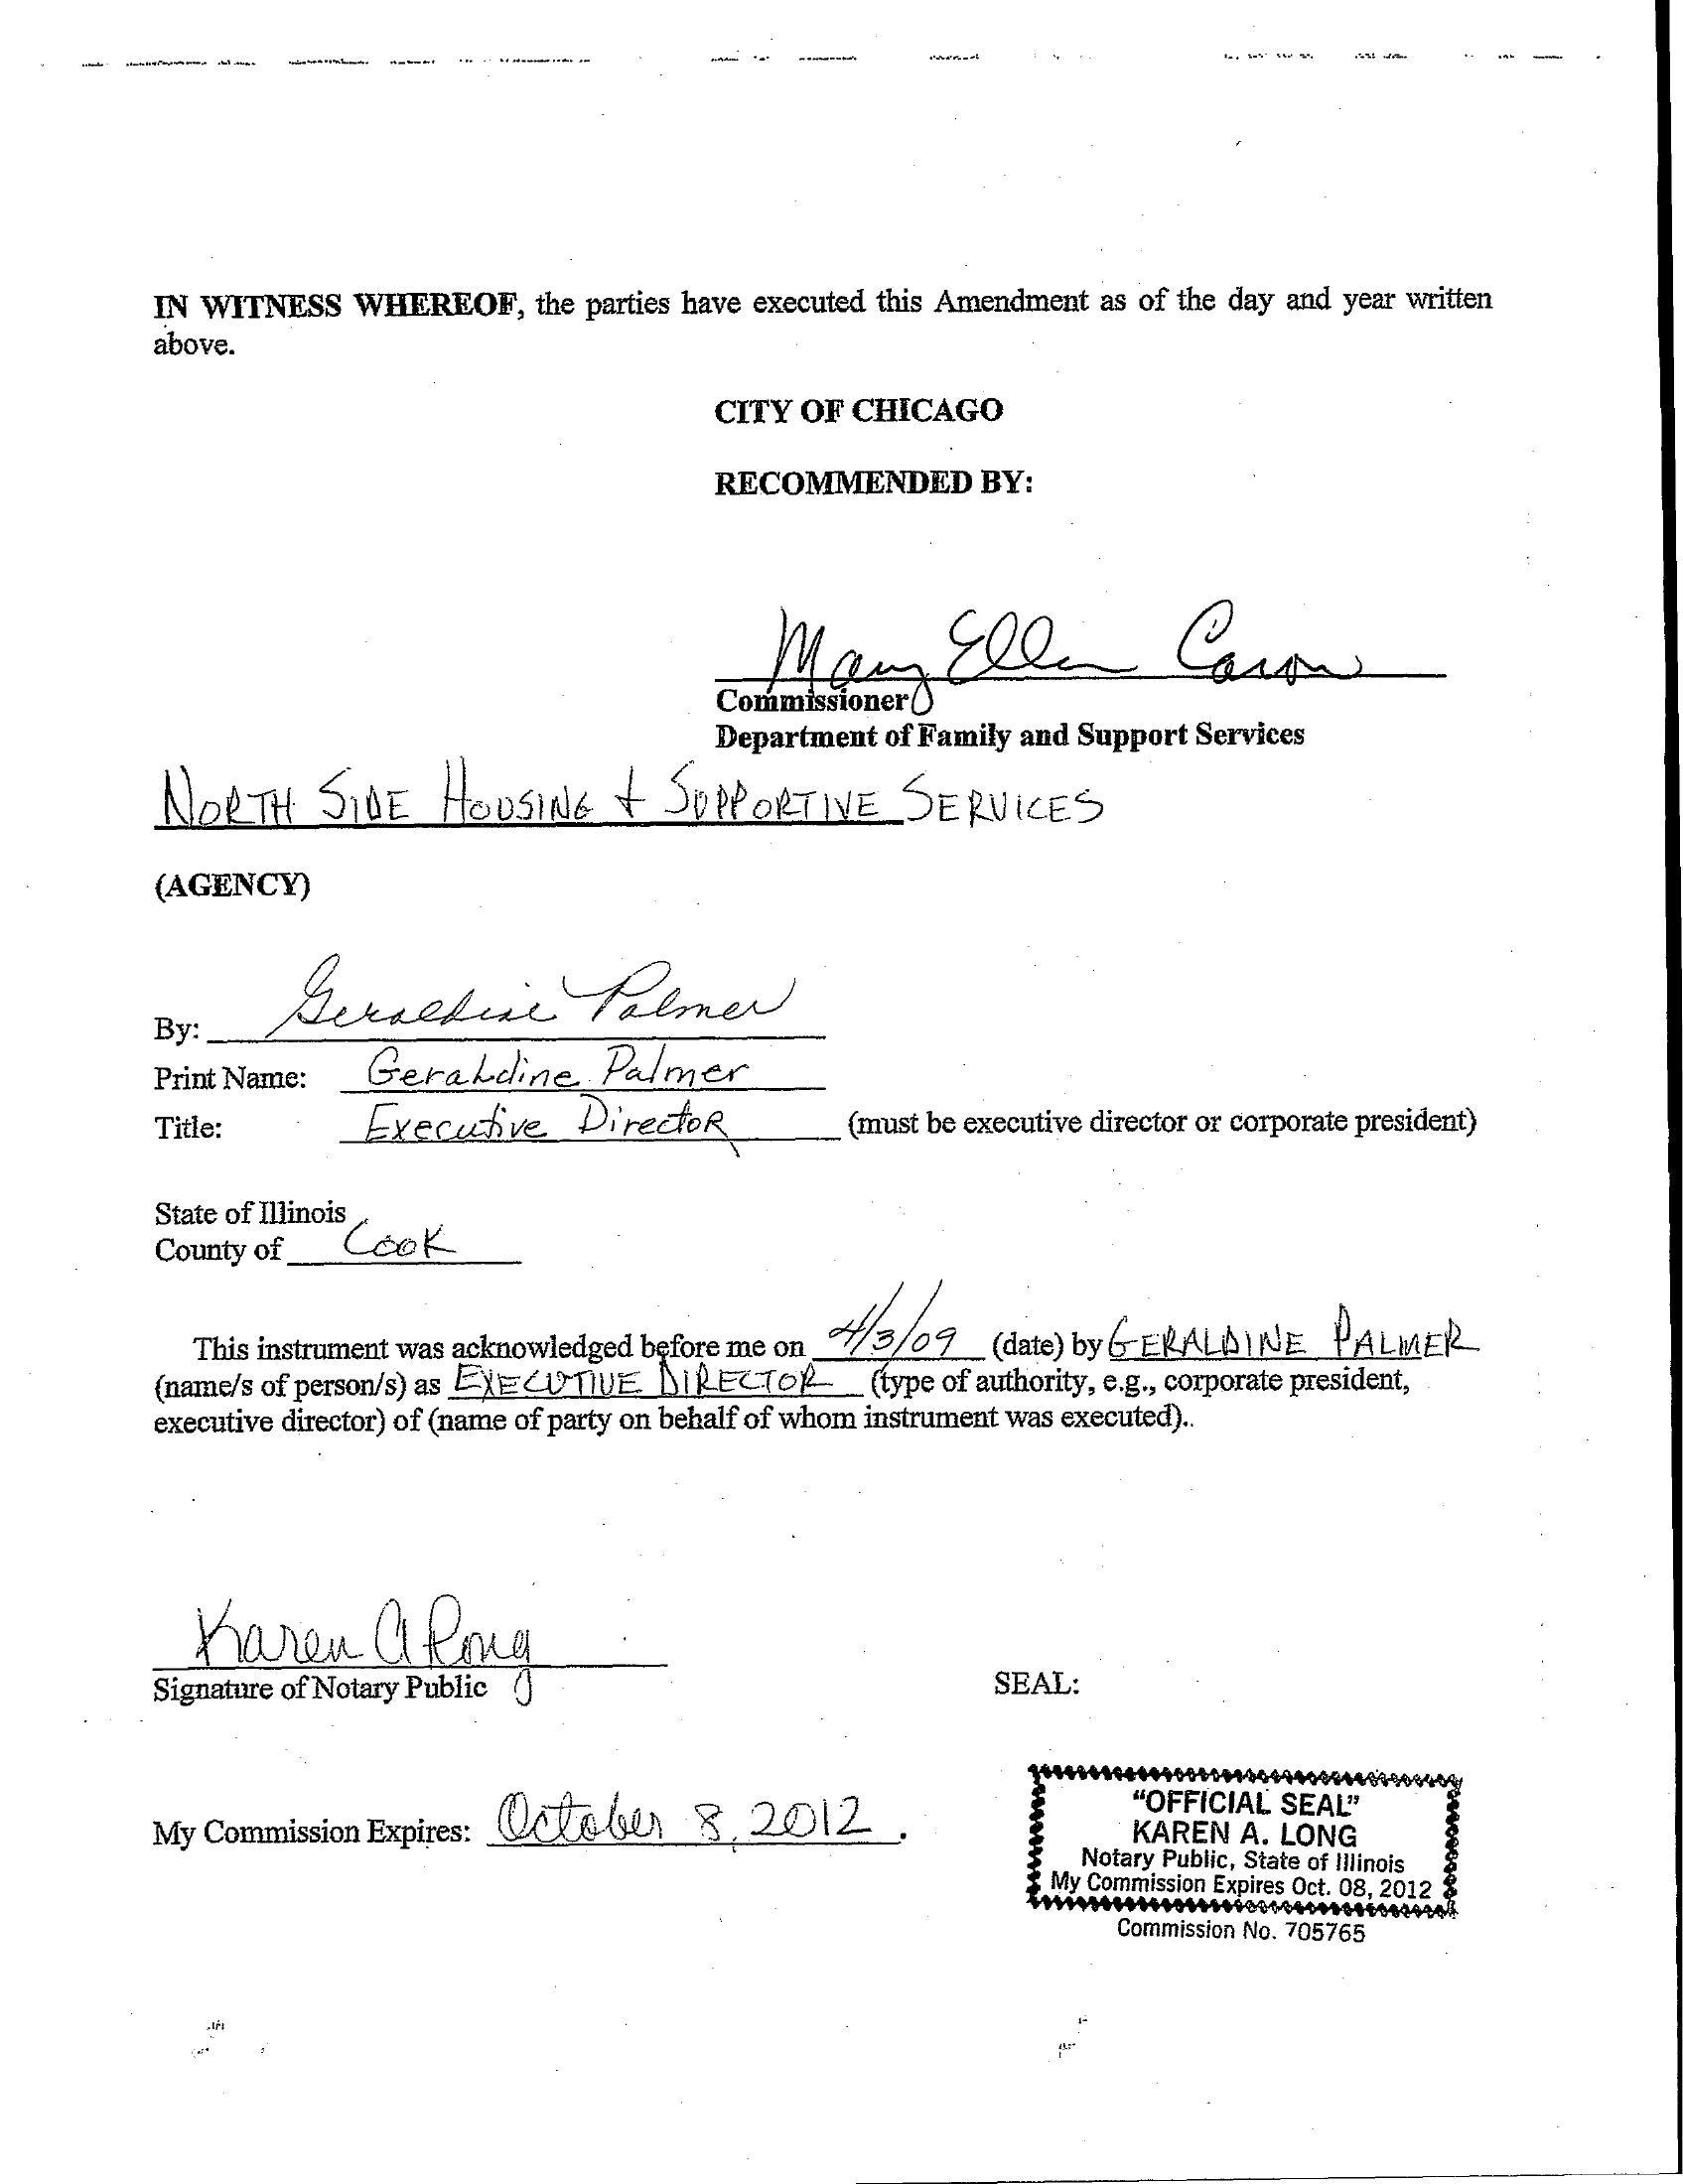 IN WITNESS WHEREOF, the parties have executed this Amendment as of the day and year written
above.
CITY OF CHICAGO
RECOMMENDED BY:
Mary Ellen Caron
Commissioner
Department of Family and Support Services
NORTH SIDE HOUSING + SUPPORTIVE SERVICES
(AGENCY)
By: Geraldine Palmer
Print Name: Geraldine Palmer
Title: Executive Director (must be executive director or corporate president)
State of Illinois
County of Cook
This instrument was acknowledged before me on 4/3/09 (date) by GERALDINE PALMER
(name/s of person/s) as EXECUTIVE DIRECTOR (type of authority, e.g., corporate president,
executive director) of (name of party on behalf of whom instrument was executed)..
Karen A Long
Signature of Notary Public
SEAL:
My Commission Expires: October 8, 2012.
"OFFICIAL SEAL"
KAREN A. LONG
Notary Public, State of Illinois
My Commission Expires Oct. 08, 2012
Commission No. 705765